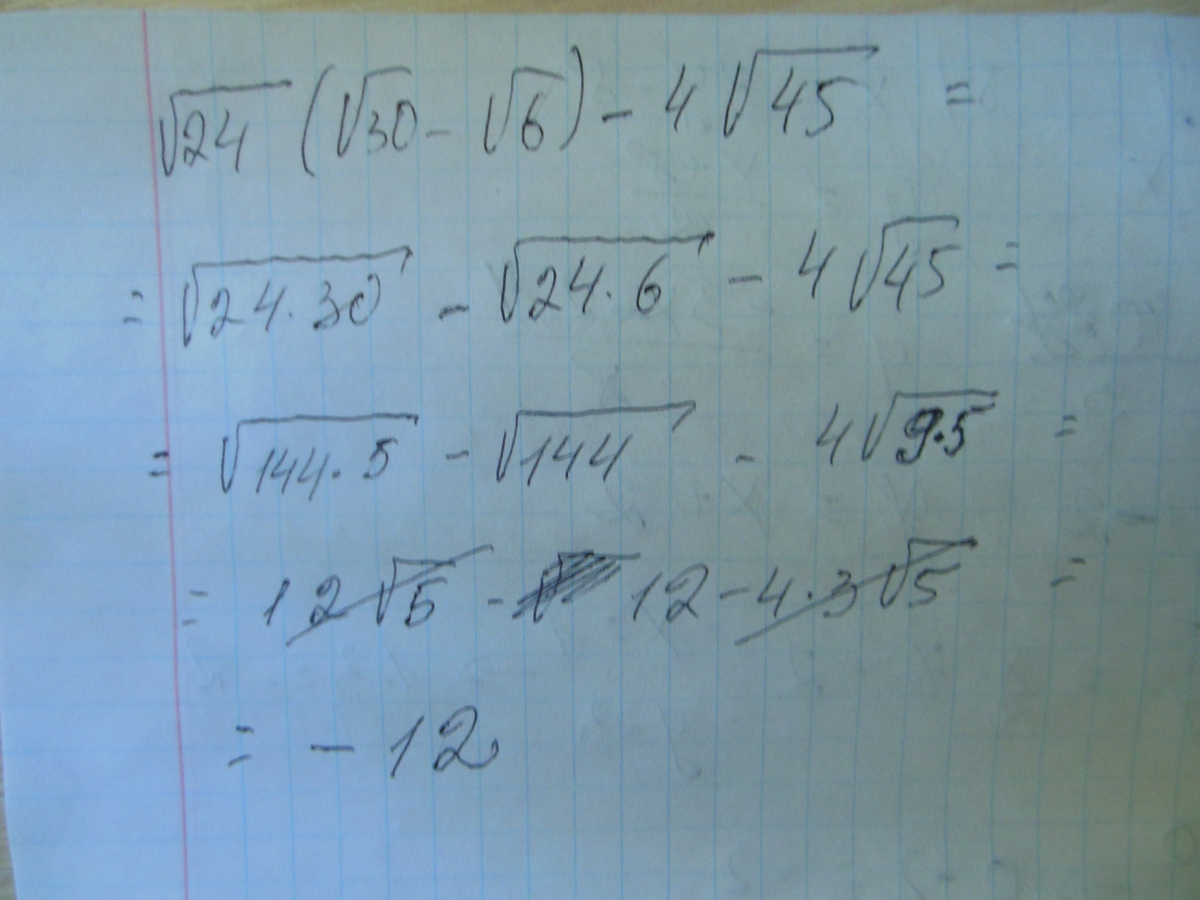 √24 (√30 - √6) - 4√45 =
= √24·30 - √24·6 - 4√45 =
= √144·5 - √144 - 4√9·5 =
= 12√5 - 12 - 4·3√5 =
= - 12